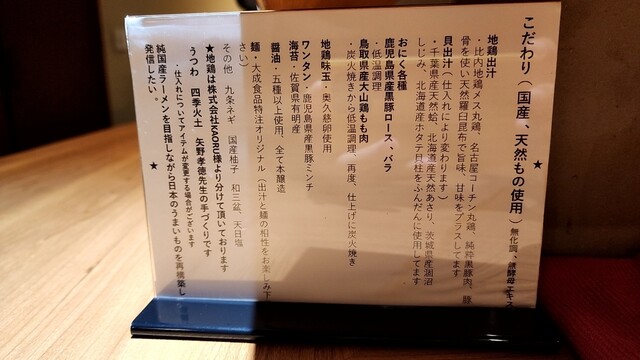 ★
こだわり（国産、天然もの使用）無化調、無酵母エキス
地鶏出汁
・比内地鶏メス丸鶏、名古屋コーチン丸鶏、純粋黒豚肉、豚
骨を使い天然羅臼昆布で旨味、甘味をプラスしてます
貝出汁（仕入れにより変わります）
・千葉県産天然蛤、北海道産天然あさり、茨城県産涸沼
しじみ、北海道産ホタテ貝柱をふんだんに使用してます
おにく各種
鹿児島県産黒豚ロース、バラ
・低温調理
鳥取県産大山鶏もも肉
・炭火焼きから低温調理、再度、仕上げに炭火焼き
地鶏味玉・奥久慈卵使用
ワンタン・鹿児島県産黒豚ミンチ
海苔・佐賀県有明産
醤油・五種以上使用、全て本醸造
麺・大成食品特注オリジナル（出汁と麺の相性をお楽しみ下
さい）
その他 九条ネギ 国産柚子 和三盆、天日塩
★地鶏は株式会社KAORU様より分けて頂いております
うつわ 四季火土 矢野孝徳先生の手づくりです
・仕入れについてアイテムが変更する場合がございます
純国産ラーメンを目指しながら日本のうまいものを再構築し
発信したい。
★